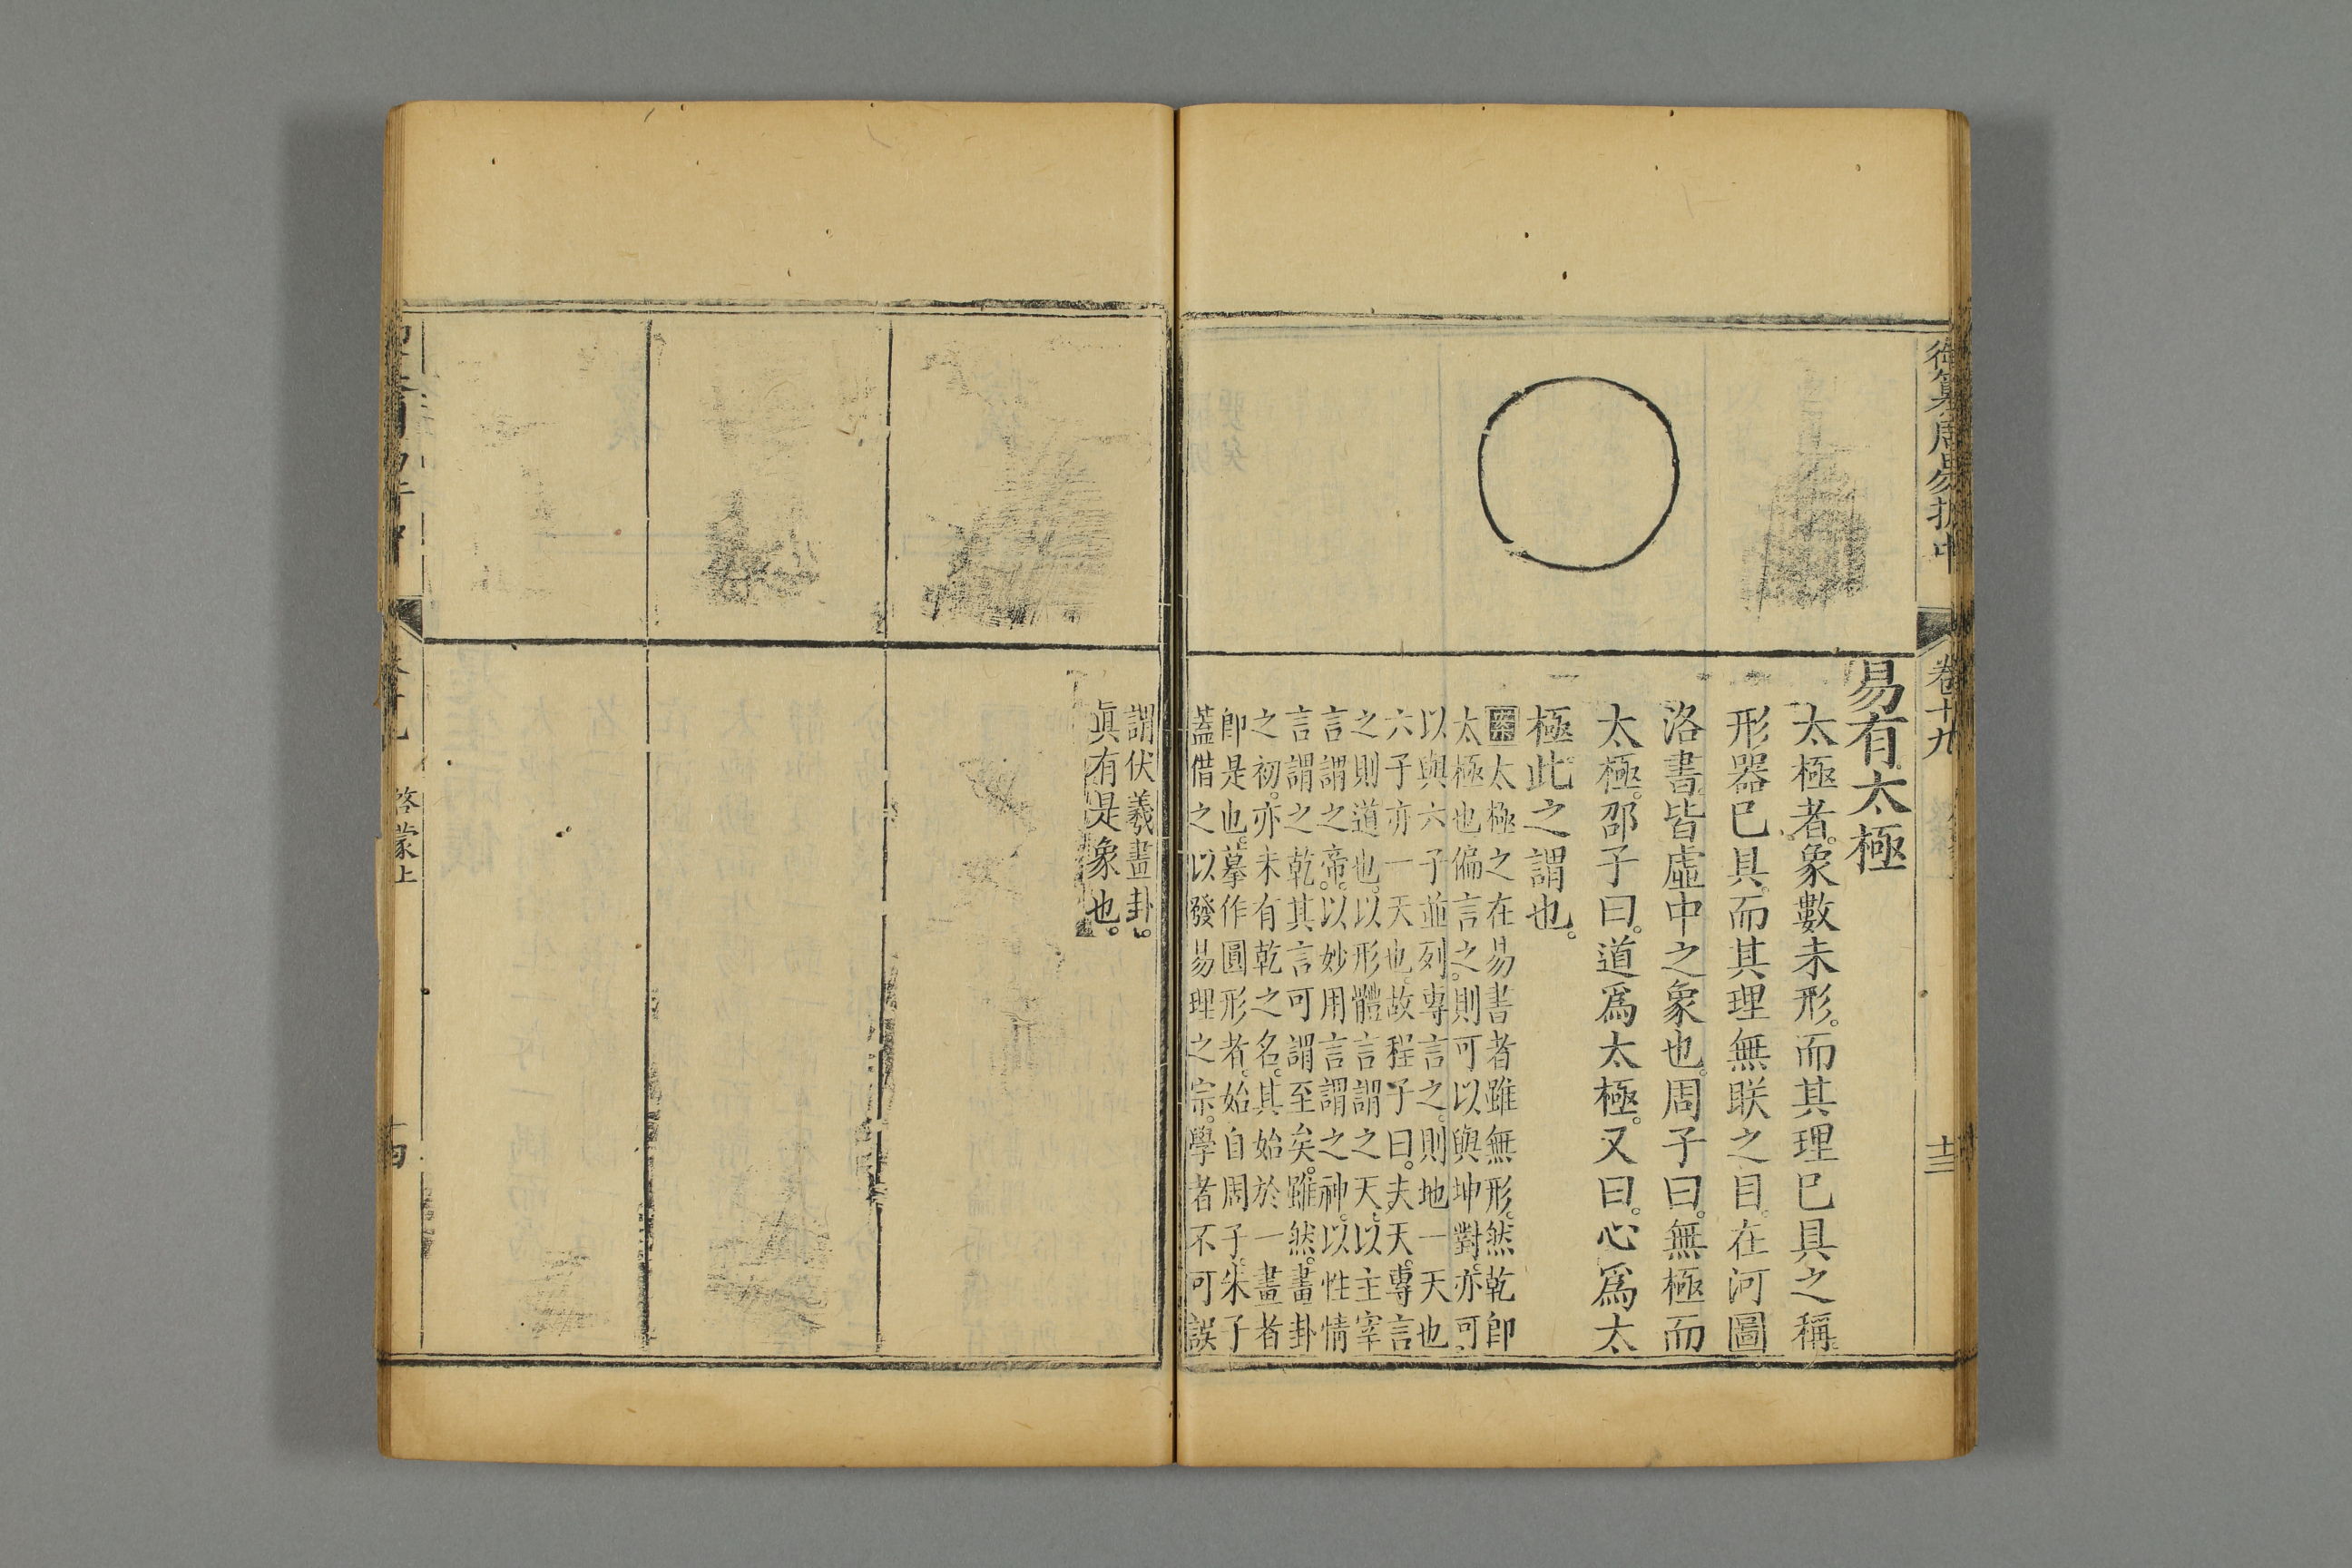 御纂周易折中
卷十九
十三
易有太極
太極者。象數未形。而其理已具之稱。
形器已具。而其理無眹之目。在河圖
洛書。皆虛中之象也。周子曰。無極而
太極。邵子曰。道爲太極。又曰。心爲太
極此之謂也。
太極之在易書者雖無形。然乾卽
太極也偏言之。則可以與坤對。亦可
以與六子並列。專言之。則地一天也
六子亦一天也。故程子曰。夫天。專言
之則道也。以形體言謂之天。以主宰
言謂之帝。以妙用言謂之神。以性情
言謂之乾。其言可謂至矣。雖然。畫卦
之初。亦未有乾之名。其始於一畫者
卽是也。摹作圓形者。始自周子。朱子
蓋借之以發易理之宗。學者不可誤
謂伏羲畫卦。
眞有是象也。
啓蒙上